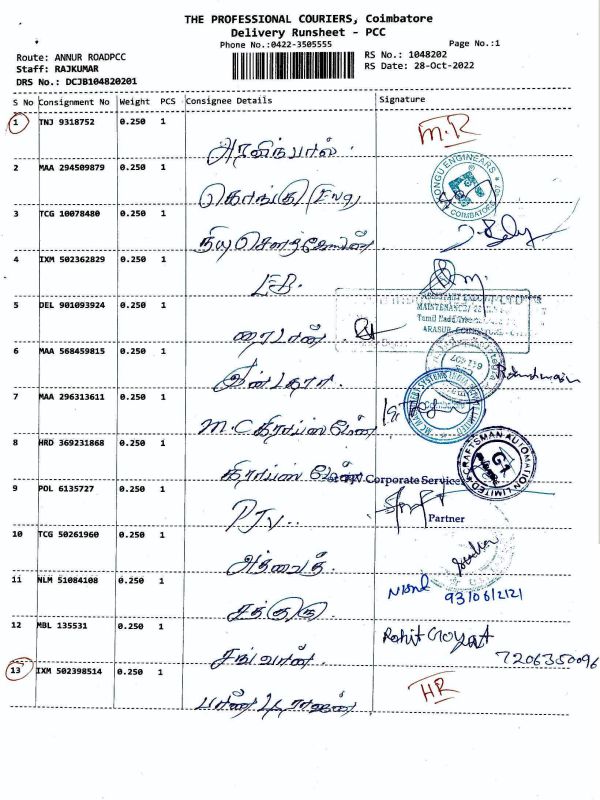 THE PROFESSIONAL COURIERS, Coimbatore
Delivery Runsheet - PCC
Phone No.:0422-3505555
Page No.:1
Route: ANNUR ROADPCC
RS No.: 1048202
Staff: RAJKUMAR
RS Date: 28-Oct-2022
DRS No.: DCJB104820201
S No Consignment No Weight PCS Consignee Details Signature
1 TNJ 9318752 0.250 1
அரவிந்பால். M.R
2 MAA 294509879 0.250 1
கொங்கு Eng KONGU ENGINEARS COIMBATORE
3 TCG 10078480 0.250 1
4 IXM 502362829 0.250 1
EB.
MAINTENANCE
ARASUR, COIMBATORE
5 DEL 901093924 0.250 1
6 MAA 568459815 0.250 1
7 MAA 296313611 0.250 1
M.C
8 HRD 369231868 0.250 1
CRAFTSMAN AUTOMATION LIMITED
Corporate Services
9 POL 6135727 0.250 1
PJV..
Partner
10 TCG 50261960 0.250 1
அத்வைத்
11 NLM 51084108 0.250 1
சத்குரு
9310612121
12 MBL 135531 0.250 1
Rohit Goyat
7206350096
13 IXM 502398514 0.250 1
HR